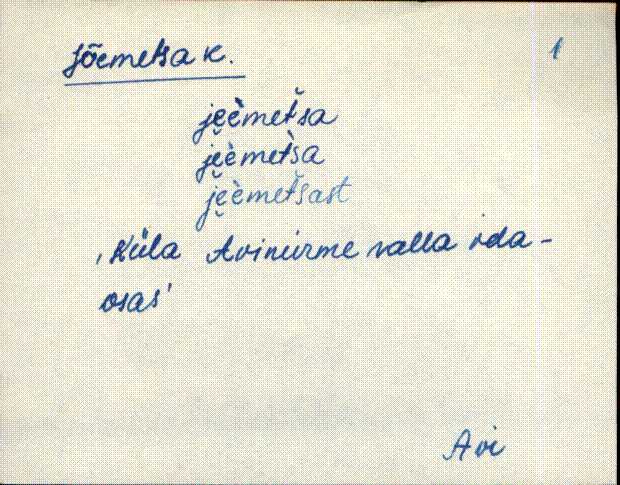 Jõemetsa k.
1
jeèmetša
jeèmetša
jeèmetšast
‚Küla Avinurme valla ida-
osas'
Avi